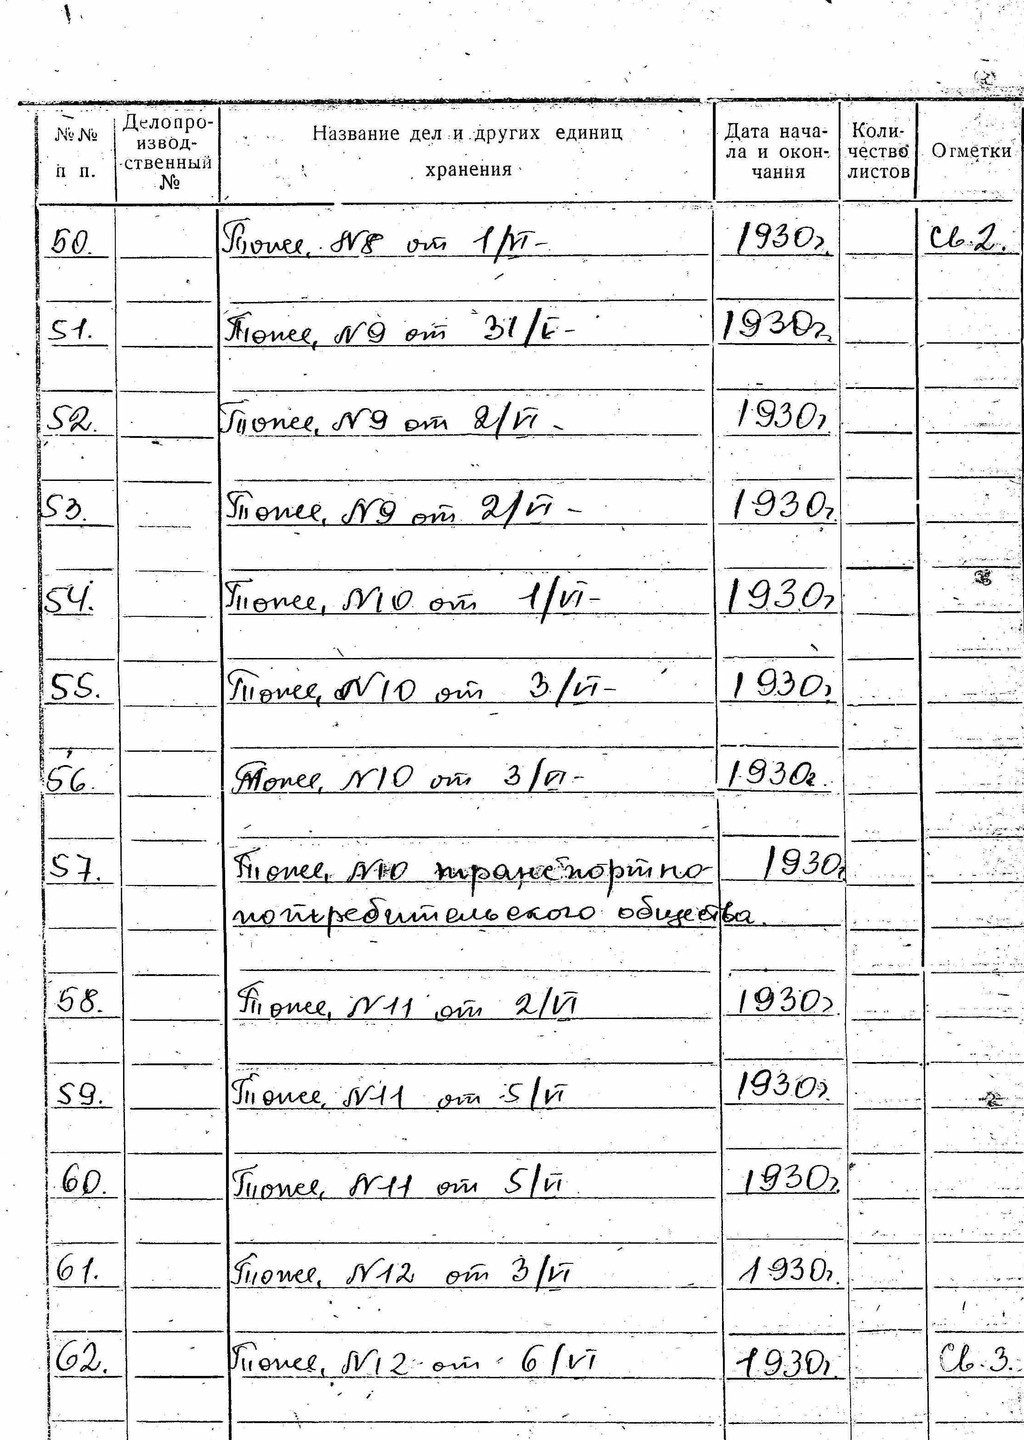 №№ п п. Делопроизвод-ственный № Название дел и других единиц хранения Дата нача-ла и окон-чания Коли-чество листов Отметки
50. Тоже, N8 от 1/VI- 1930г. Св.2.
51. Тоже, N9 от 31/V- 1930г.
52. Тоже, N9 от 2/VI- 1930г
53. Тоже, N9 от 2/VI- 1930г.
54. Тоже, N10 от 1/VI- 1930г
55. Тоже, N10 от 3/VI- 1930г.
56. Тоже, N10 от 3/VI- 1930г.
57. Тоже, N10 транспортно 1930г
потребительского общества.
58. Тоже, N11 от 2/VI 1930г.
59. Тоже, N11 от 5/VI 1930г.
60. Тоже, N11 от 5/VI 1930г.
61. Тоже, N12 от 3/VI 1930г.
62. Тоже, N12 от 6/VI 1930г. Св.3.